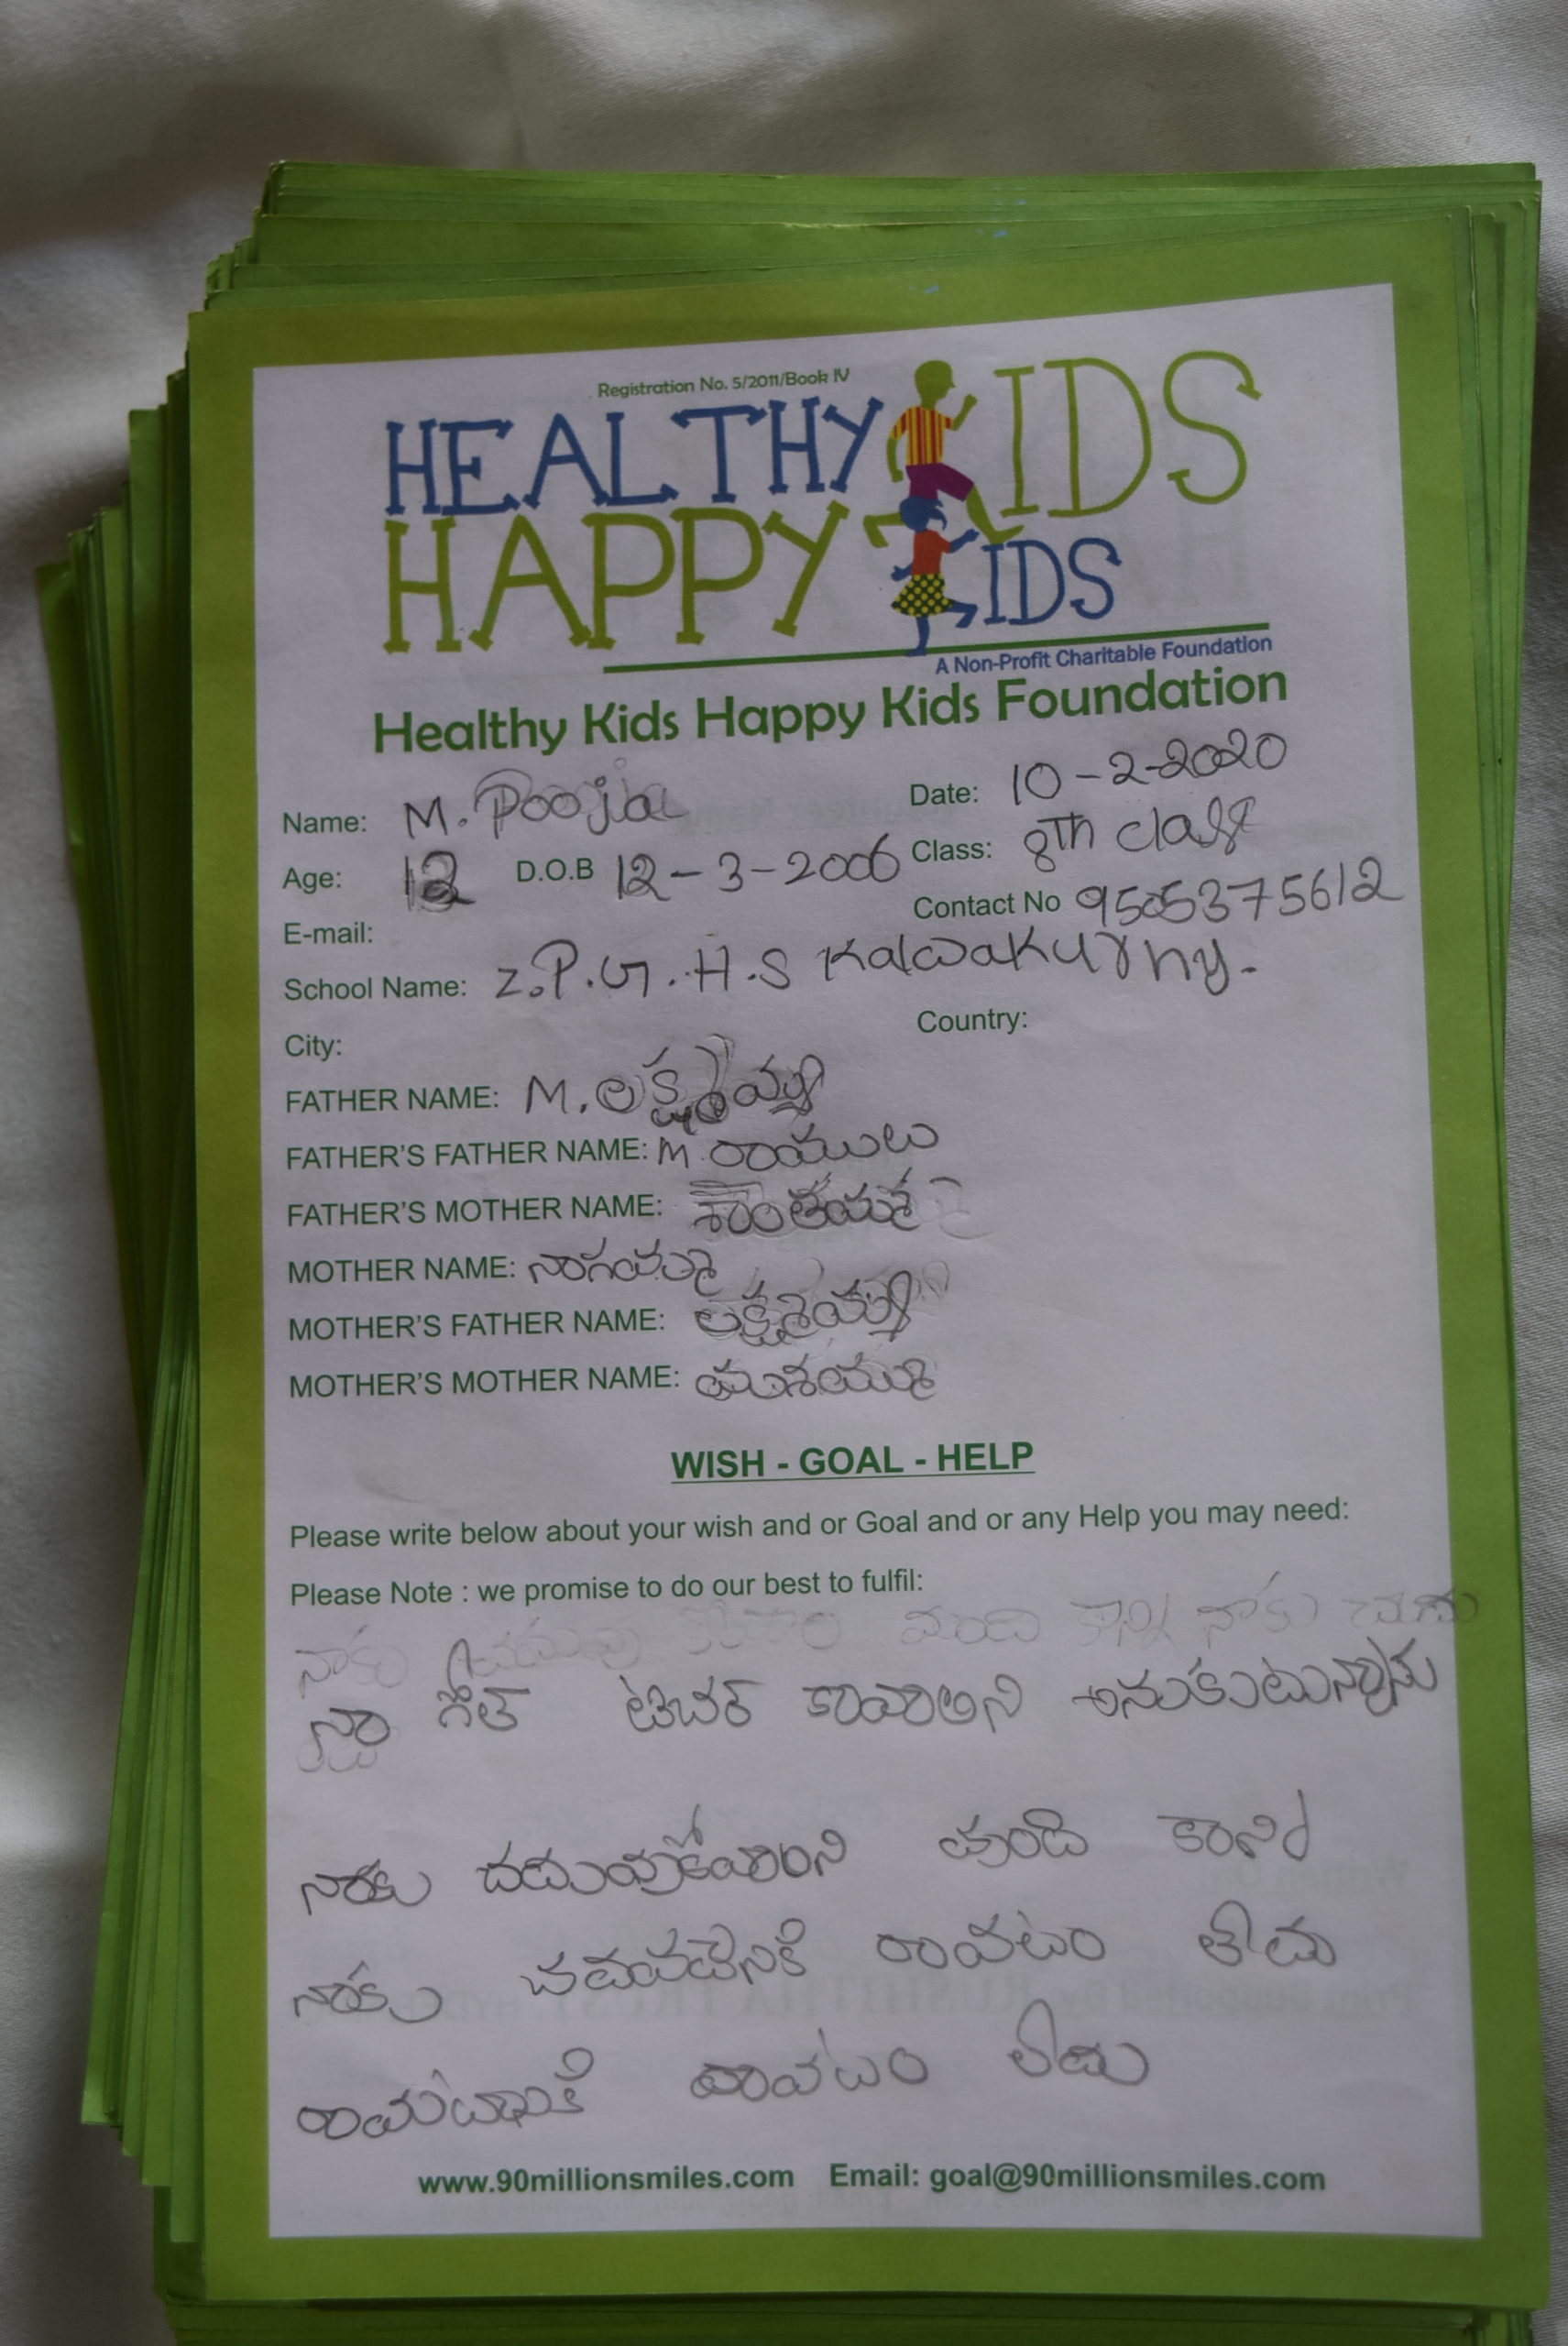 Registration No. 5/2011/Book IV
HEALTHY KIDS
HAPPY KIDS
A Non-Profit Charitable Foundation
Healthy Kids Happy Kids Foundation
Name: M. Pooja Date: 10-2-2020
Age: 12 D.O.B 12-3-2006 Class: 8th class
E-mail: Contact No 9505375612
School Name: Z.P.G.H.S Kalwakurhy.
City: Country:
FATHER NAME: M.
FATHER'S FATHER NAME: M రాములు
FATHER'S MOTHER NAME:
MOTHER NAME: నాగమ్మ
MOTHER'S FATHER NAME:
MOTHER'S MOTHER NAME:
WISH - GOAL - HELP
Please write below about your wish and or Goal and or any Help you may need:
Please Note : we promise to do our best to fulfil:
నాకు
నా గోల్ టిచర్ కావాలని అనుకుటున్నాను
నాకు చదువుకోవాలని వుంది కాని
నాకు రావటం లేదు
రావటం లేదు
www.90millionsmiles.com Email: goal@90millionsmiles.com